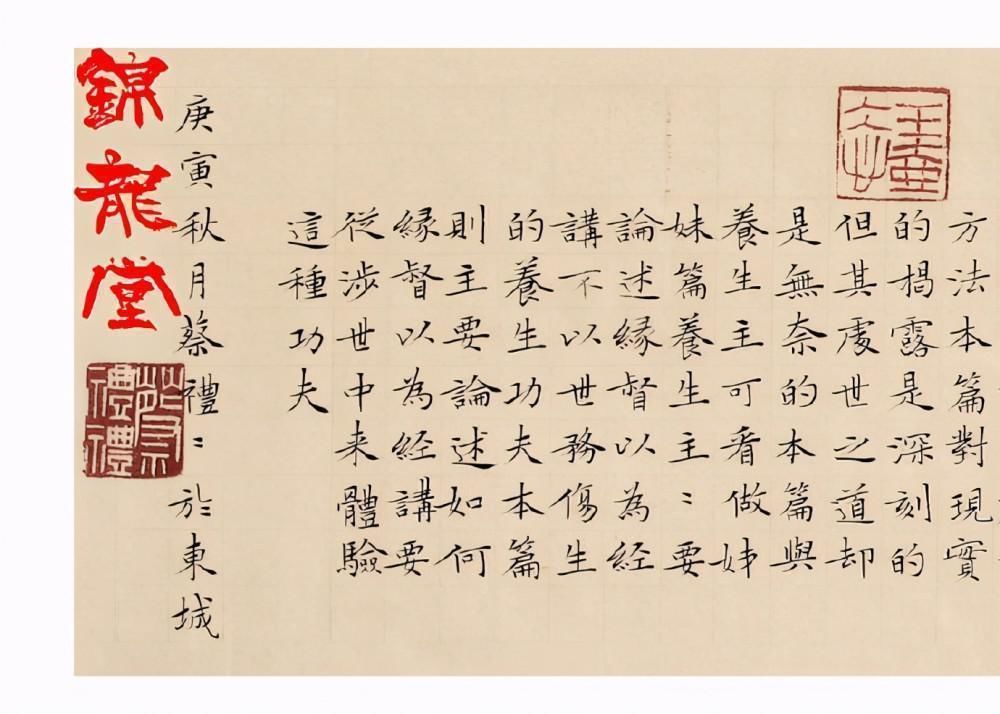 方法本篇對現實
的揭露是深刻的
但其處世之道却
是無奈的本篇與
養生主可看做姊
妹篇養生主〻要
論述緣督以為経
講不以世務傷生
的養生功夫本篇
則主要論述如何
緣督以為経講要
從涉世中来體驗
這種功夫
庚寅秋月蔡禮〻於東城
錦龍堂
蔡禮禮